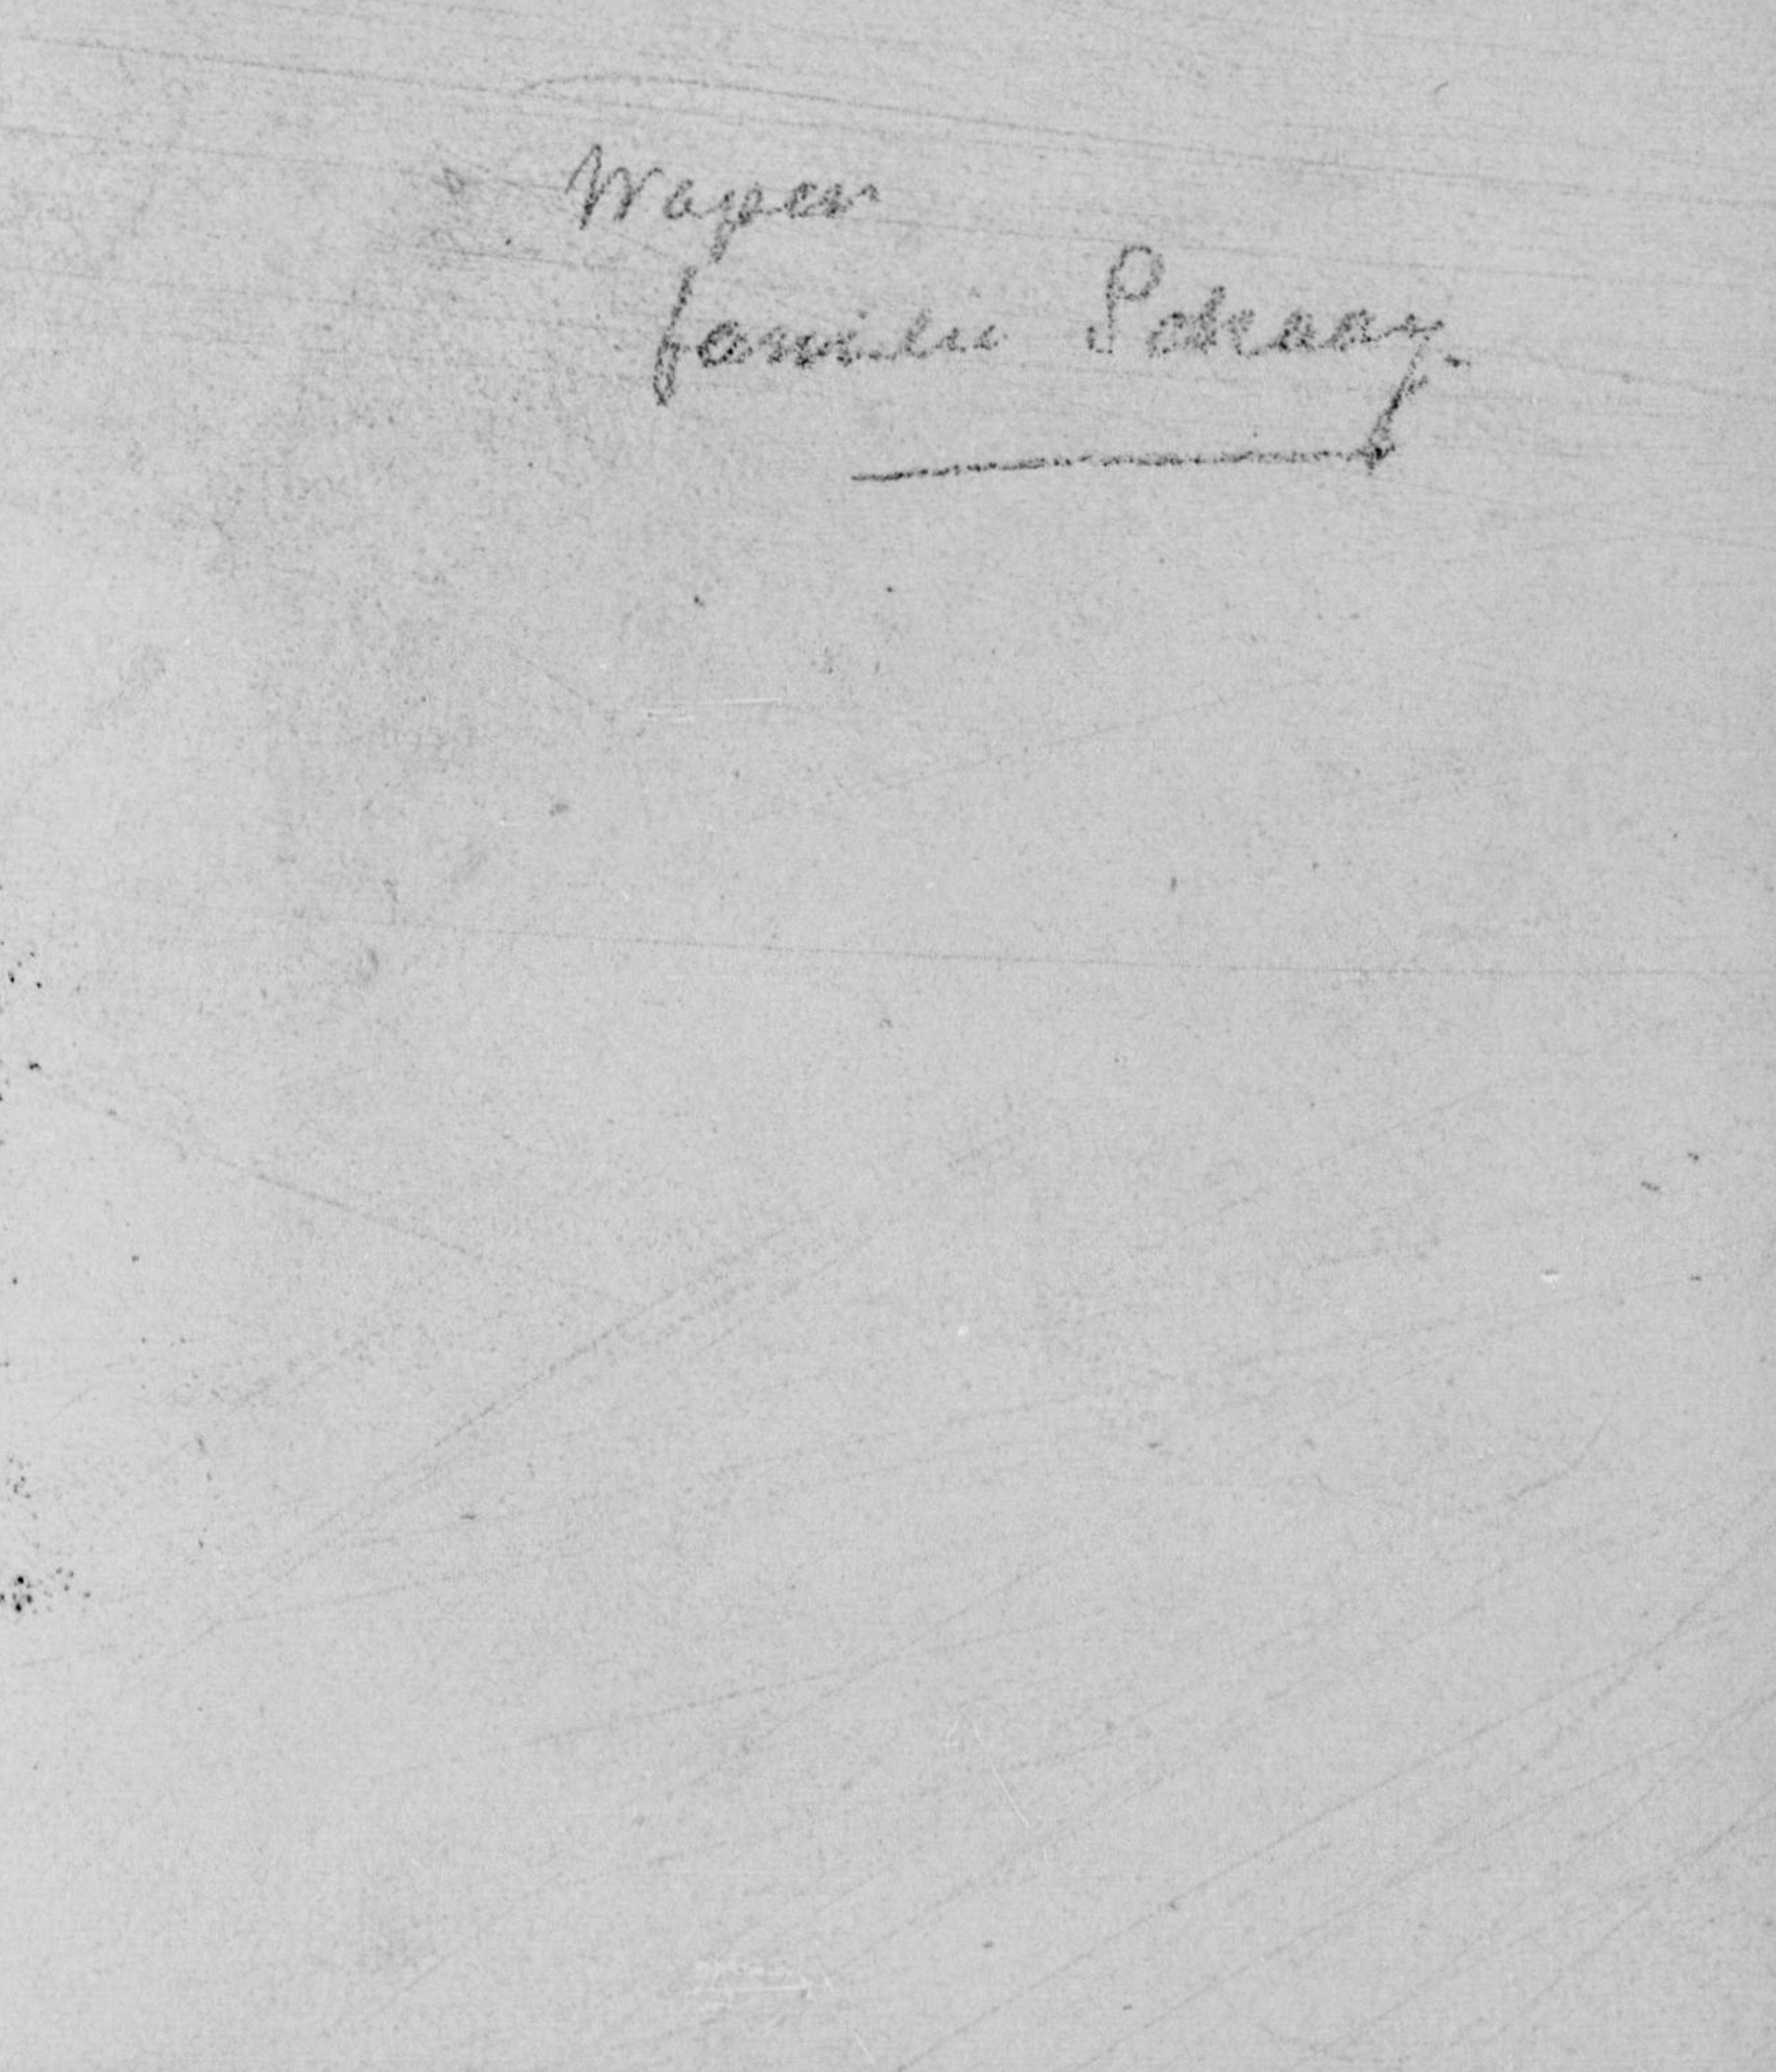 Wapen
familie Schaay.